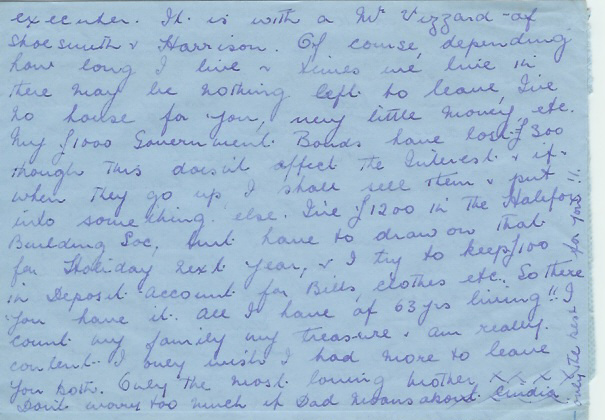 executer. It is with a Mr Vizzard - of
Shoesmith & Harrison. Of course, depending
how long I live & times we live in
there may be nothing left to leave, I've
no house for you, very little money, etc.
My £1000 Government Bonds have lost £300
though this doesn't affect the Interest & if -
when they go up I shall sell them & put
into something else. I've £1200 in The Halifax
Building Soc, but have to draw on that
for Holiday next year, & I try to keep £100
in Deposit account for Bills, clothes etc. So there
you have it. All I have of 63 yrs living!! I
count my family my treasure & am really
content I only wish I had more to leave
you both. Only the most loving Mother x x x x
Don't worry too much if Dad moans about
only the best for you!!